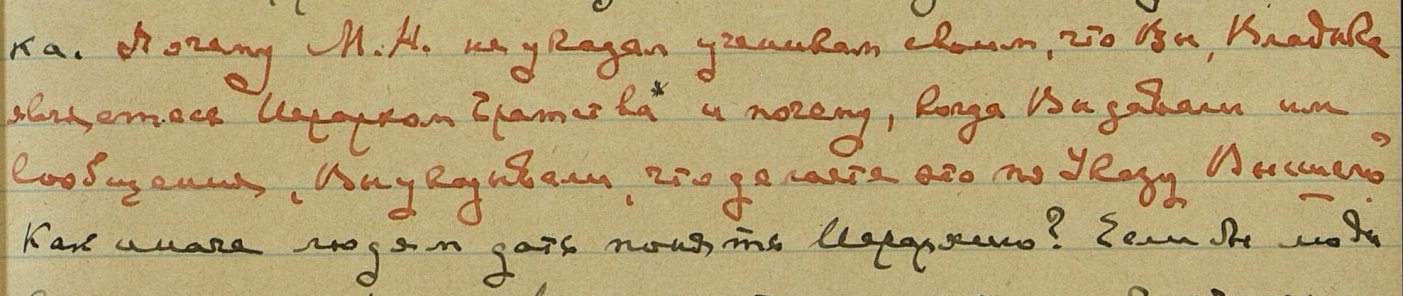 ка. Почему М.Н. не указал ученикам своим, что Вы, Владыка
являетесь Иерархом Братства* и почему, когда Вы давали им
сообщения, Вы указывали, что делаете это по Указу Высшего?
Как иначе людям дать понять Иерархию? Если бы люди